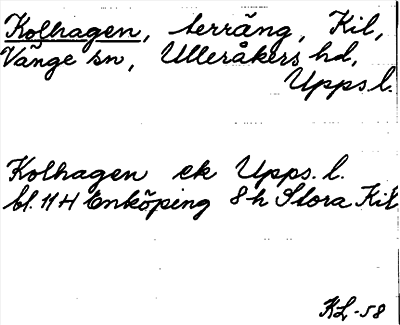 Kolhagen, terräng, Kil,
Vänge sn, Ulleråkers hd,
Upps.l.
Kolhagen ek Upps. l.
bl. 11H Enköping 8h Stora Kil
KL-58